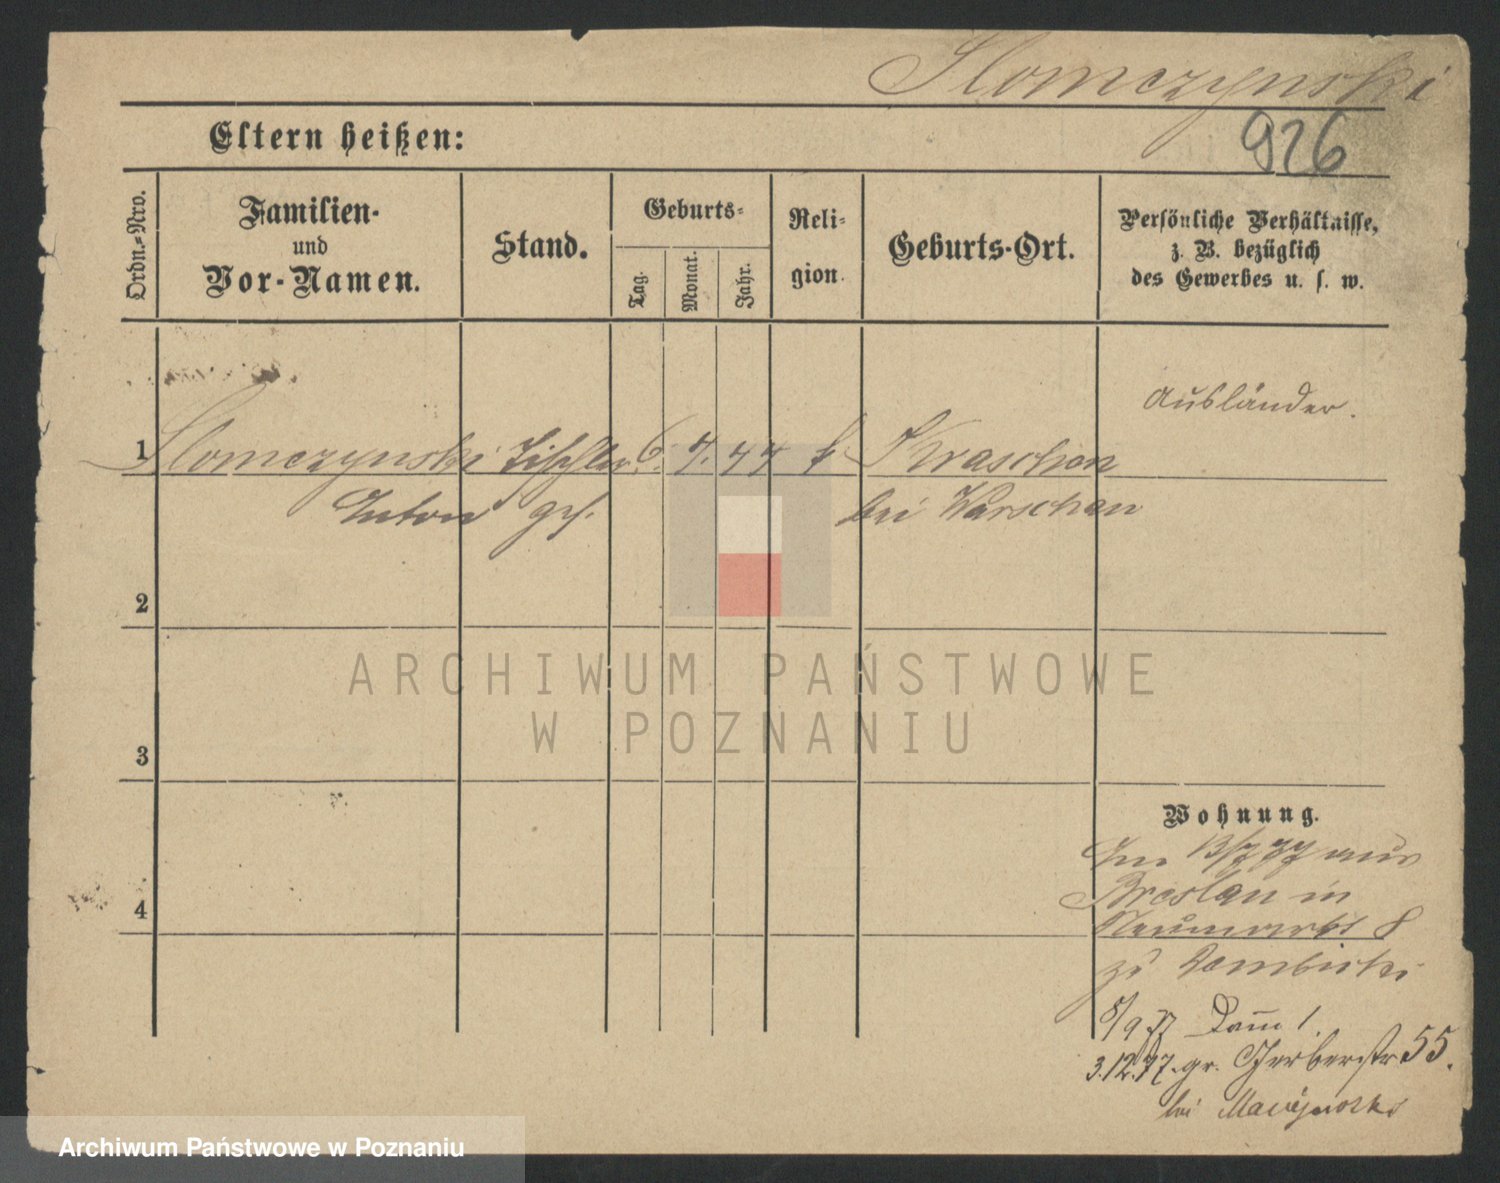 Slomczynski
926
Eltern heißen:
Ordn.-Nro.
Familien-
und
Vor-Namen.
Stand.
Geburts-
Tag.
Monat.
Jahr.
Reli-
gion.
Geburts-Ort.
Persönliche Verhältnisse,
z. B. bezüglich
des Gewerbes u. s. w.
Ausländer.
1 Slomczynski Tischler 6. 4. 44 k
Anton ges. bei Warschau
2
ARCHIWUM PAŃSTWOWE
W POZNANIU
3
Wohnung.
13/7 77 aus
Breslau in
4
Neumarkt 8
zu
8/9 77 Damm 1.
3.12.77. gr. Gerberstr 55.
bei
Archiwum Państwowe w Poznaniu